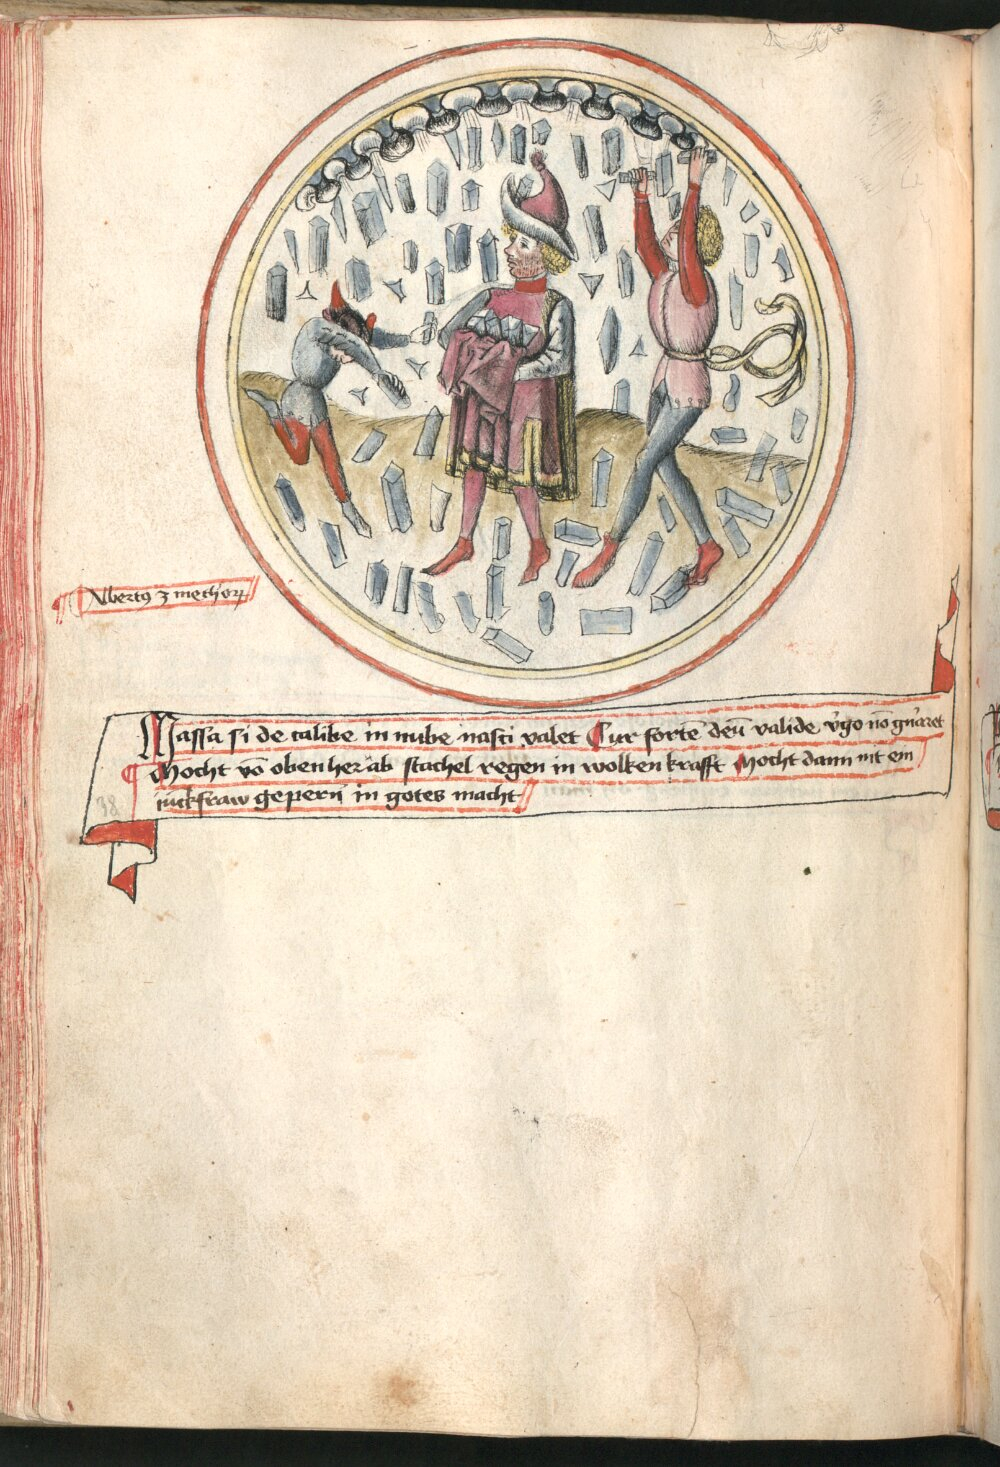 Albertus 3 methori
Massa si de calibe in nube nasci valet Cur fortē deū valide v̄go nō gn̄aret
Mocht vō oben her ab stachel regen in wolken krafft Mocht dann mit em
iuckfraw gepern in gotes macht
38